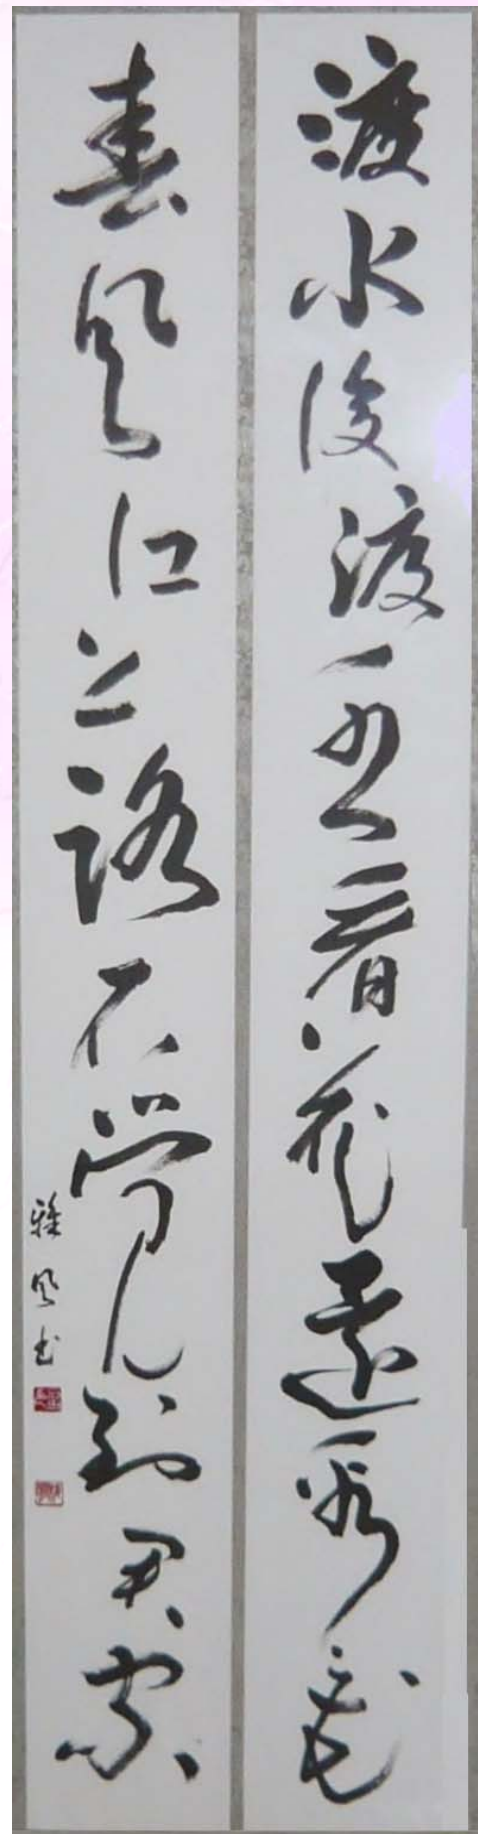 渡水復渡水看花還看花
春風江上路不覺到君家
雅風書